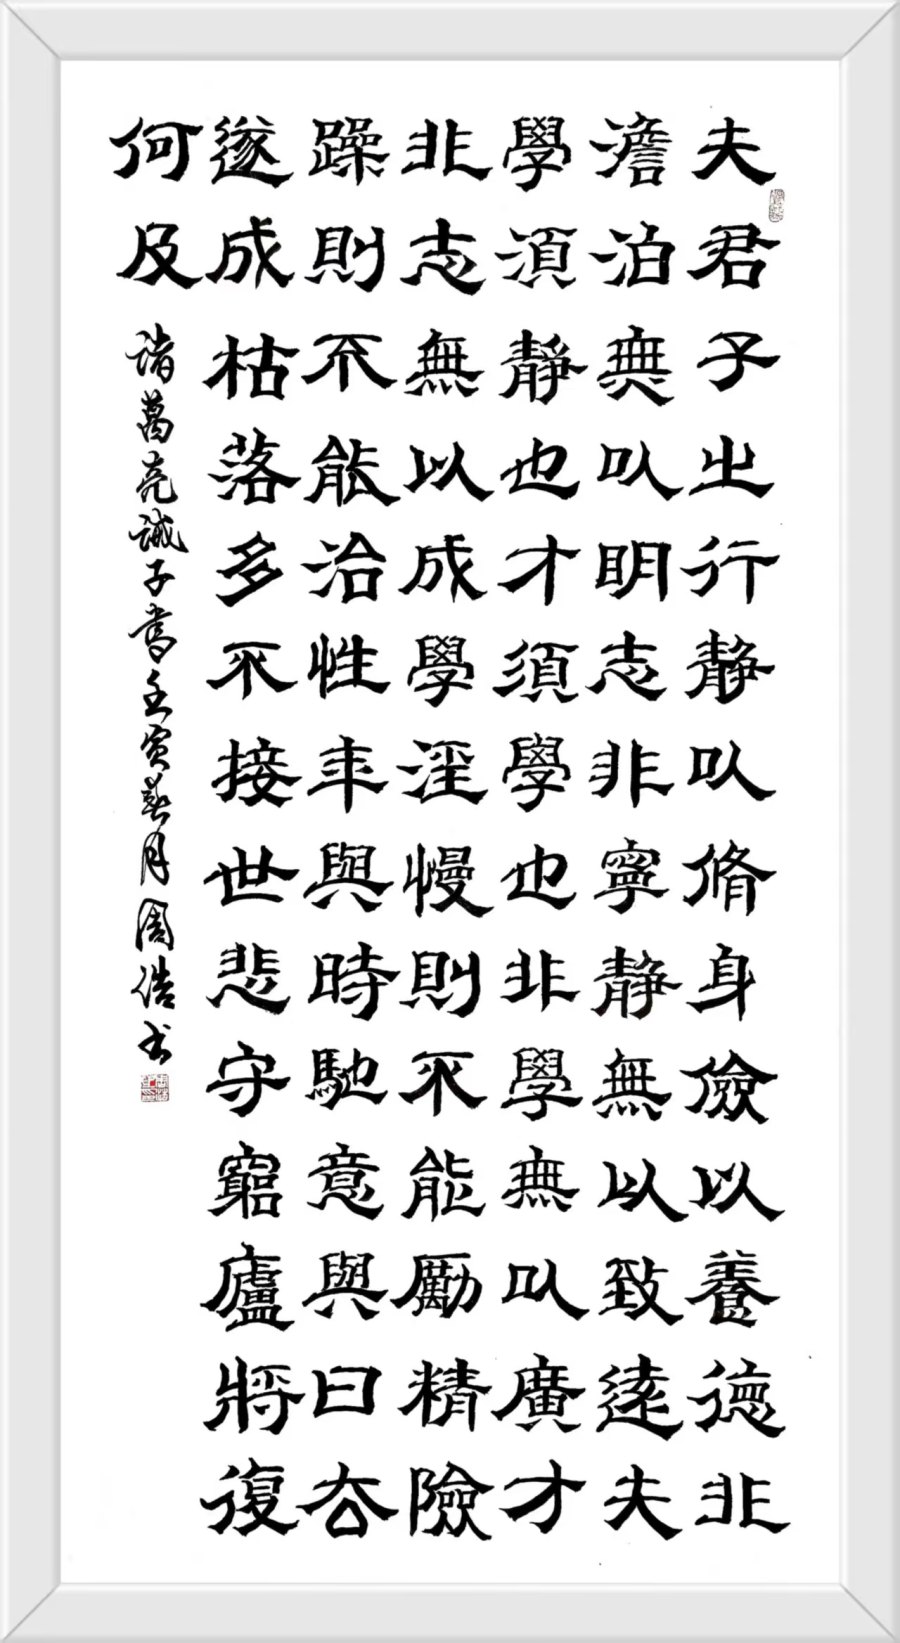 夫君子之行静以脩身儉以養德非
澹泊無以明志非寧静無以致遠夫
學須静也才須學也非學無以廣才
非志無以成學淫慢則不能勵精險
躁則不能治性年與時馳意與日去
遂成枯落多不接世悲守窮廬將復
何及
諸葛亮誡子書壬寅月周浩书